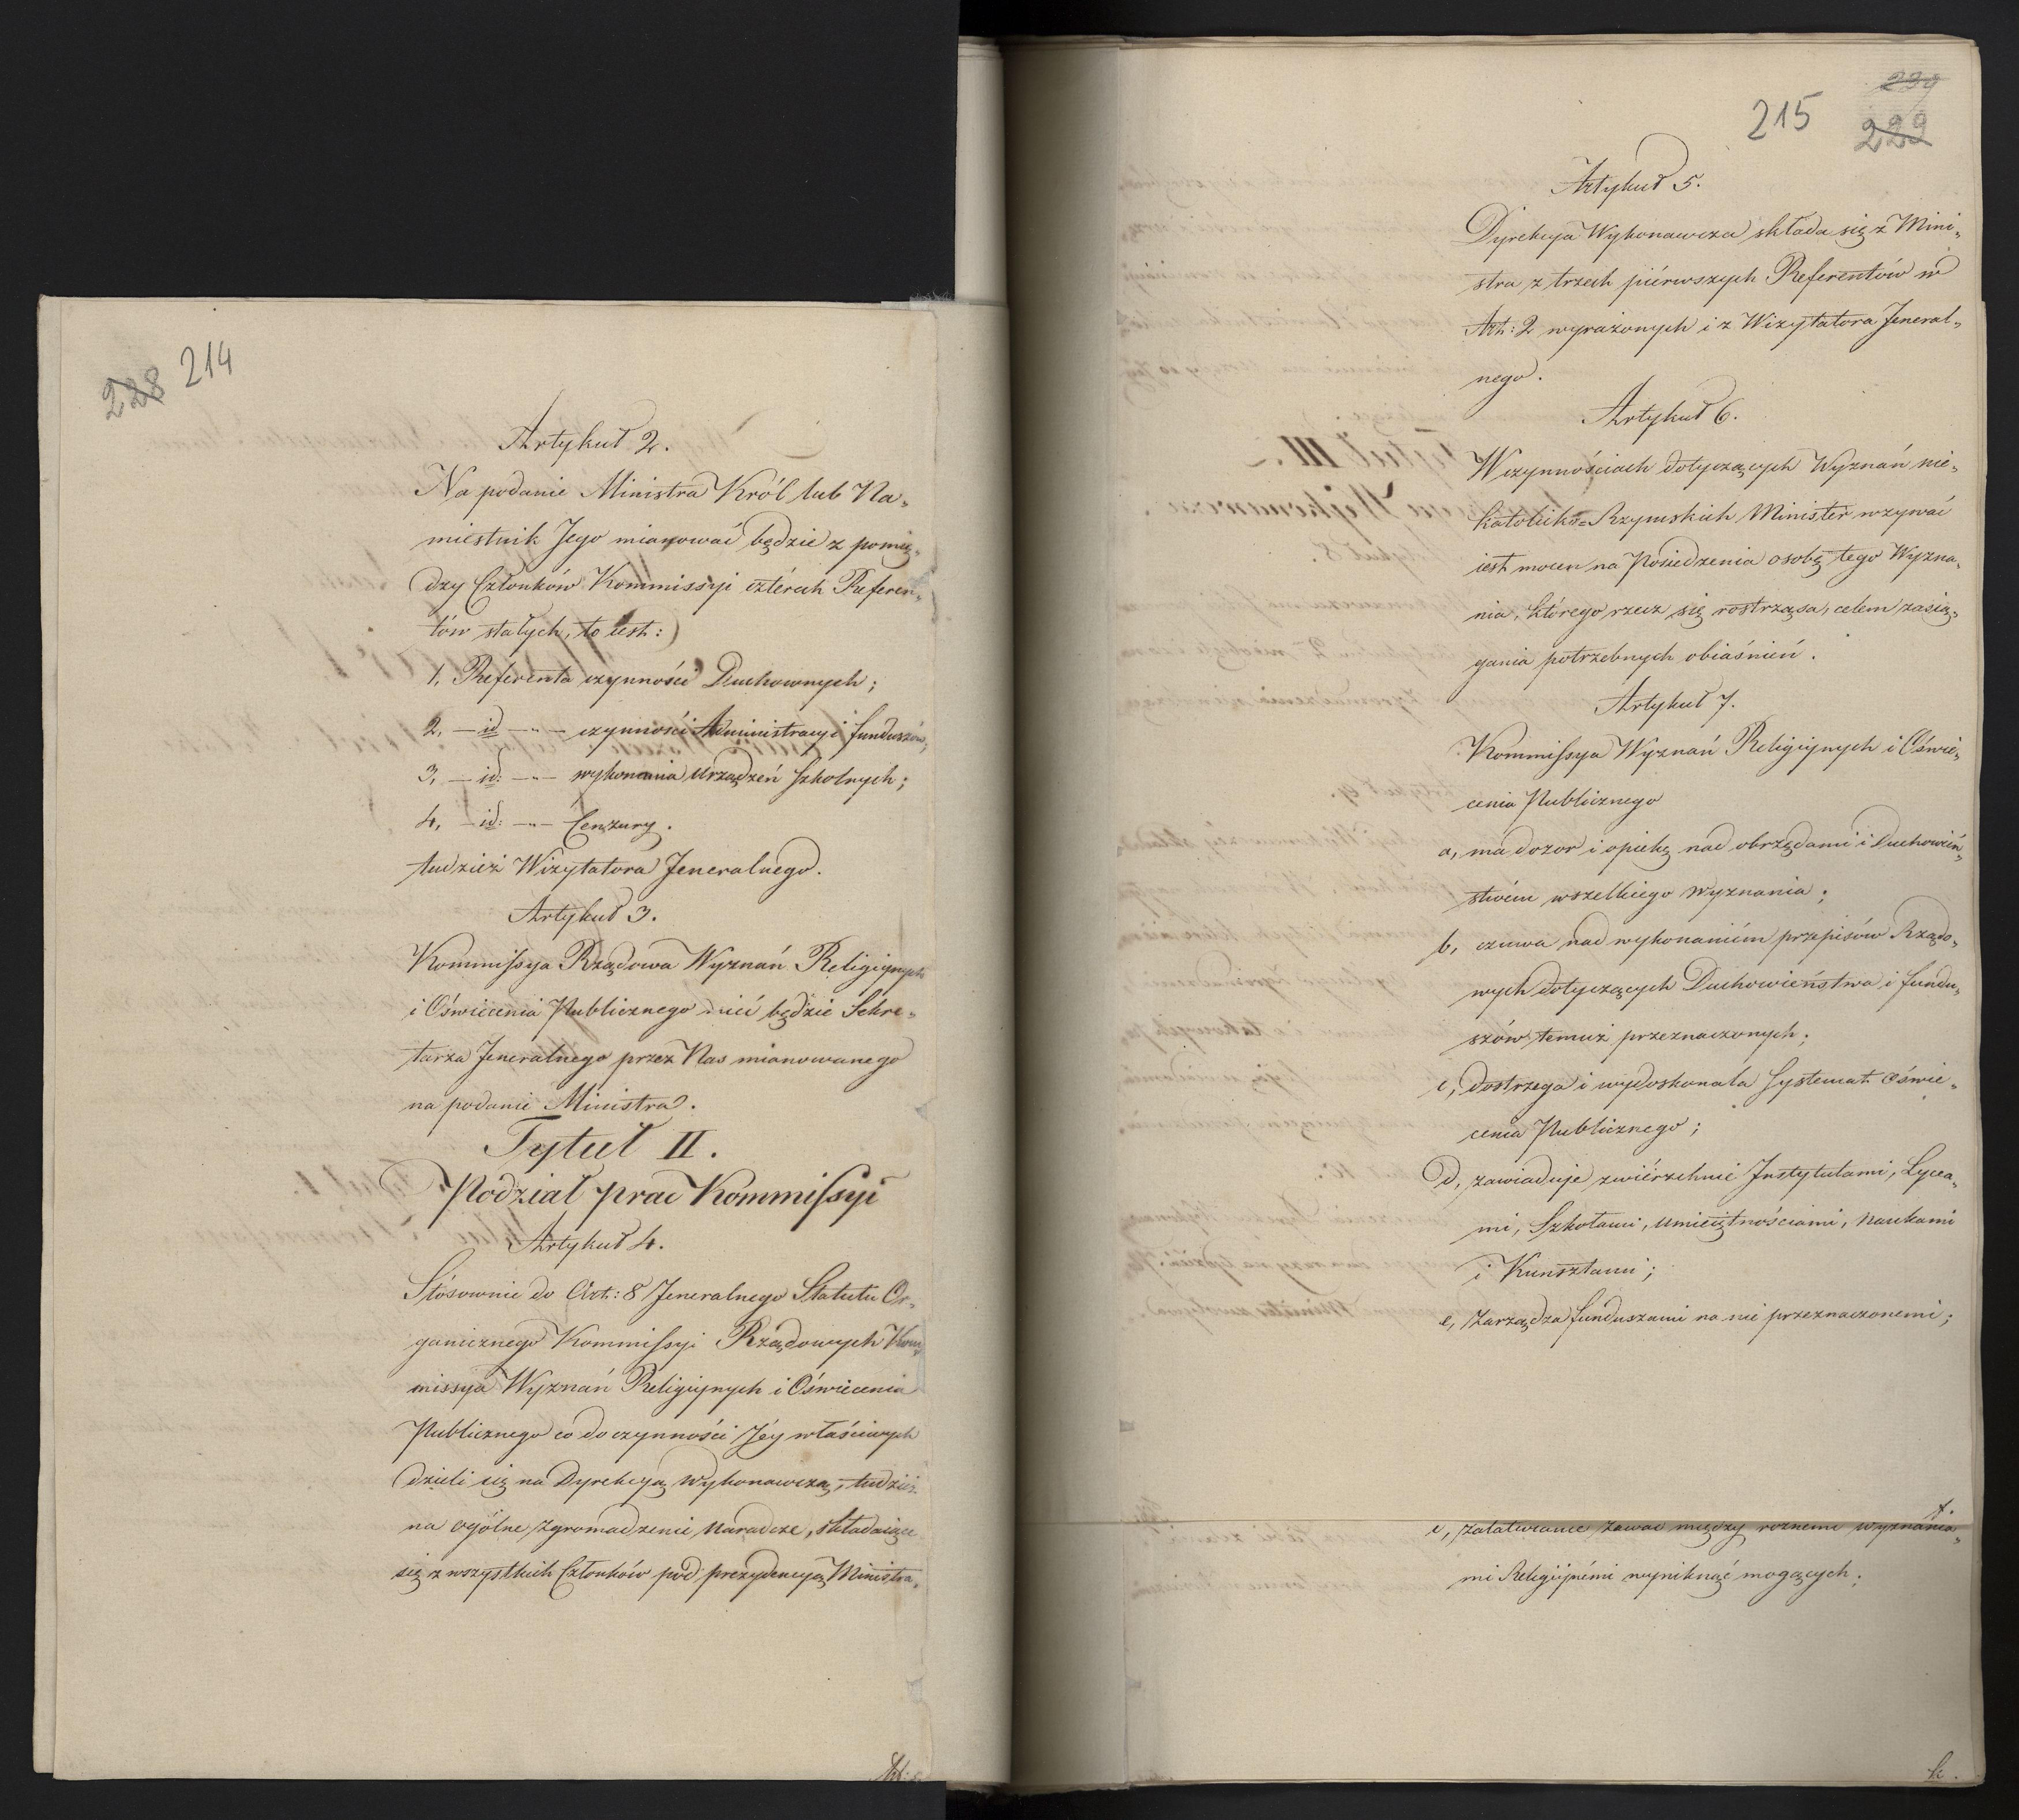 228 214
Artykuł 2.
Na podanie Ministra Król lub Na„
miestnik Jego mianować będzie z pomię„
dzy Członków Kommissyi czterech Referen„
tów stałych, to iest:
1, Referenta czynności Duchownych;
2, — id — „ — czynności Administracyi funduszów;
3, — id: — „ — wykonania urządzeń szkolnych;
4, — id: — „ — Cenzury.
tudzież Wizytatora Jeneralnego.
Artykuł 3.
Kommissya Rządowa Wyznań Religiynych
i Oświecenia Publicznego mieć będzie Sekre„
tarza Jeneralnego przez Nas mianowanego
na podanie Ministra.
Tytuł II.
Podział prac Kommissyi
Artykuł 4.
Stósownie do Art: 8 Jeneralnego Statutu Or„
ganicznego Kommissyi Rządowych Kom„
missya Wyznań Religiynych i Oświecenia
Publicznego co do czynności Jéy właściwych
dzieli się na Dyrekcyą Wykonawczą, tudzież
na ogólne zgromadzenie naradcze, składaiące
się z wszystkich Członków pod prezydencyą Ministra.
215 229
222
Artykuł 5.
Dyrekcya Wykonawcza składa się z Mini„
stra z trzech piérwszych Referentów w
Art: 2 wyrażonych i z Wizytatora Jeneral„
nego.
Artykuł 6.
W czynnościach dotyczących Wyznań nie„
Katolicko=Rzymskich Minister wzywać
iest mocen na Posiedzenia osobę tego Wyzna„
nia, którego rzecz się rostrząsa, celem zasią„
gania potrzebnych obiaśnień.
Artykuł 7.
Kommissya Wyznań Religiynych i Oświe„
cenia Publicznego
a, ma dozor i opiekę nad obrzędami i Duchowień„
stwém wszelkiego wyznania;
b, czuwa nad wykonaniém przepisów Rządo„
wych dotyczących Duchowieństwa i fundu„
szów temuż przeznaczonych;
c, dostrzega i wydoskonala systemat Oświe„
cenia Publicznego;
d, zawiaduje zwiérzchnie Instytutami, Lycea„
mi, Szkołami, umieiętnościami, naukami
i Kunsztami;
e, Zarządza funduszami na nie przeznaczonemi;
f.
e, załatwianie zawad między roznemi wyznania„
mi Religiynémi wyniknąć mogących;